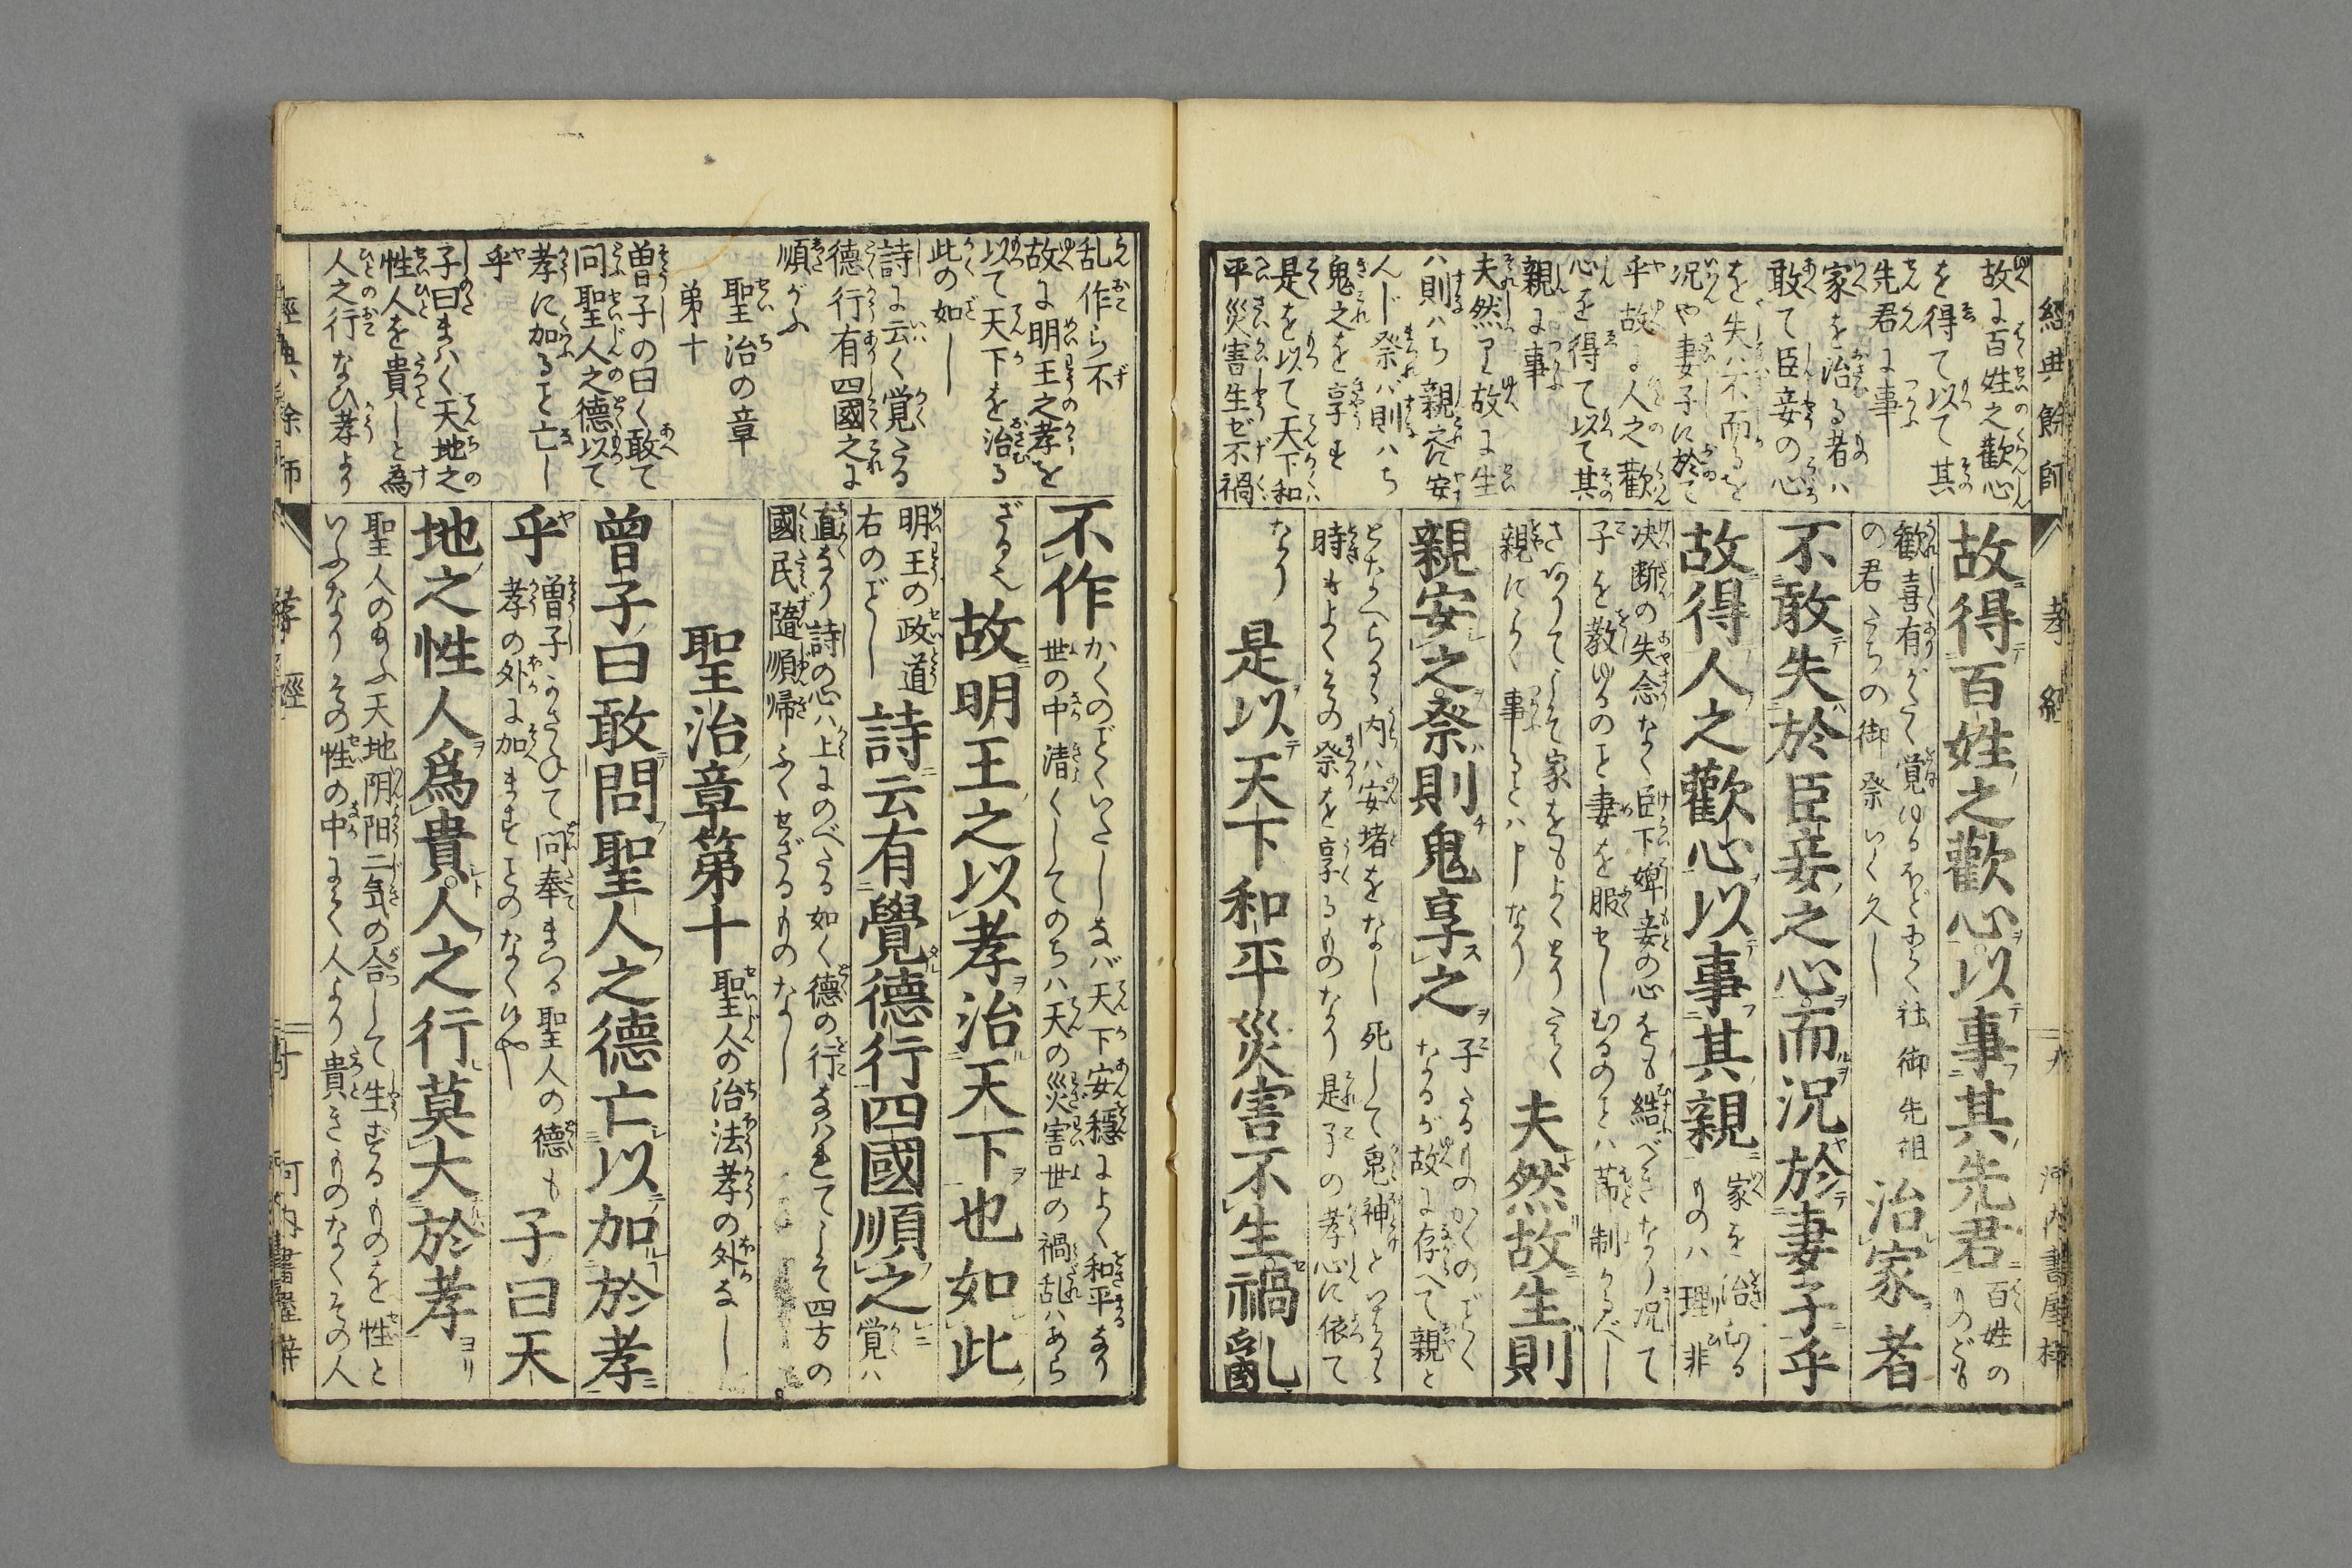 經典餘師
孝經
九
河内書屋梓
故に百姓之歡心
を得て以て其
先君に事
家を治る者ハ
敢て臣妾の心
を失ハ不而るを
况や妻子に於て
乎故に人之歡
心を得て以て其
親に事
夫然り故に生
ハ則ハち親之に安
んじ祭バ則ハち
鬼之を享
是を以て天下和
平災害生ぜ不禍
故得百姓之歡心以事其先君
百姓の
ものども
歡喜有がたく覚ゆるほどにて社御先祖
の君たちの御祭いく久し
治家者
不敢失於臣妾之心而況於妻子乎
故得人之歡心以事其親
家を治むる
ものハ理非
决断の失念なく臣下婢妾の心をも結べきなり况て
子を教ゆるのと妻を服せしむるのとハ
親に事るとハ申なり
夫然故生則
親安之祭則鬼享之
子たるものかくのごとく
なるが故に存へて親と
内ハ安堵をなし死して鬼神と
時もよくその祭を享るものなり是子の孝心に依て
なり
是以天下和平災害不生禍亂
乱作ら不
故に明王之孝を
以て天下を治る
此の如し
詩に云く覚たる
德行有四國之に
順がふ
聖治の章
第十
曽子の曰く敢て
問聖人之德以て
孝に加ること亡し
乎
子曰まハく天地之
性人を貴しと為
人之行なひ孝より
不作
かくのごくいたしなバ天下安穏によく和平なり
世の中清くしてのちハ天の災害世の禍乱ハあら
ざる也
故明王之以孝治天下也如此
明王の政道
右のごとし
詩云有覺德行四國順之
覚ハ
直なり詩の心ハ上にのべたる如く德の行なハれてこそ四方の
國民隨順帰ふくせざるものなし
聖治章第十
聖人の治法孝の外なし
曾子曰敢問聖人之德亡以加於孝
乎
曽子かさねて問奉まつる聖人の德も
孝の外に加ますことのなく候や
子曰天
地之性人爲貴人之行莫大於孝
聖人のたまふ天地阴阳二気の合して生ずるものを性と
いふなりその性の中にて人より貴きものなくその人
經典餘師
孝經
河内書屋梓